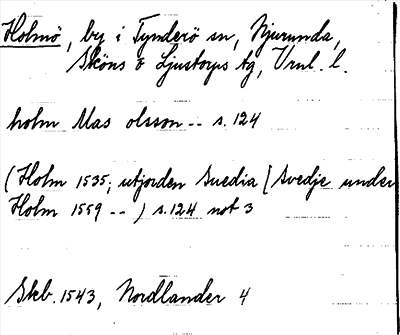 Holmö, by i Tynderö sn, Njurunda,
Sköns o Ljustorps tg, Vrml. l.
holm Mas olsson -- s. 124
(Holm 1535; utjorden Suedia [Svedje under
Holm 1559 -- ) s. 124 not 3
Skb. 1543, Nordlander 4